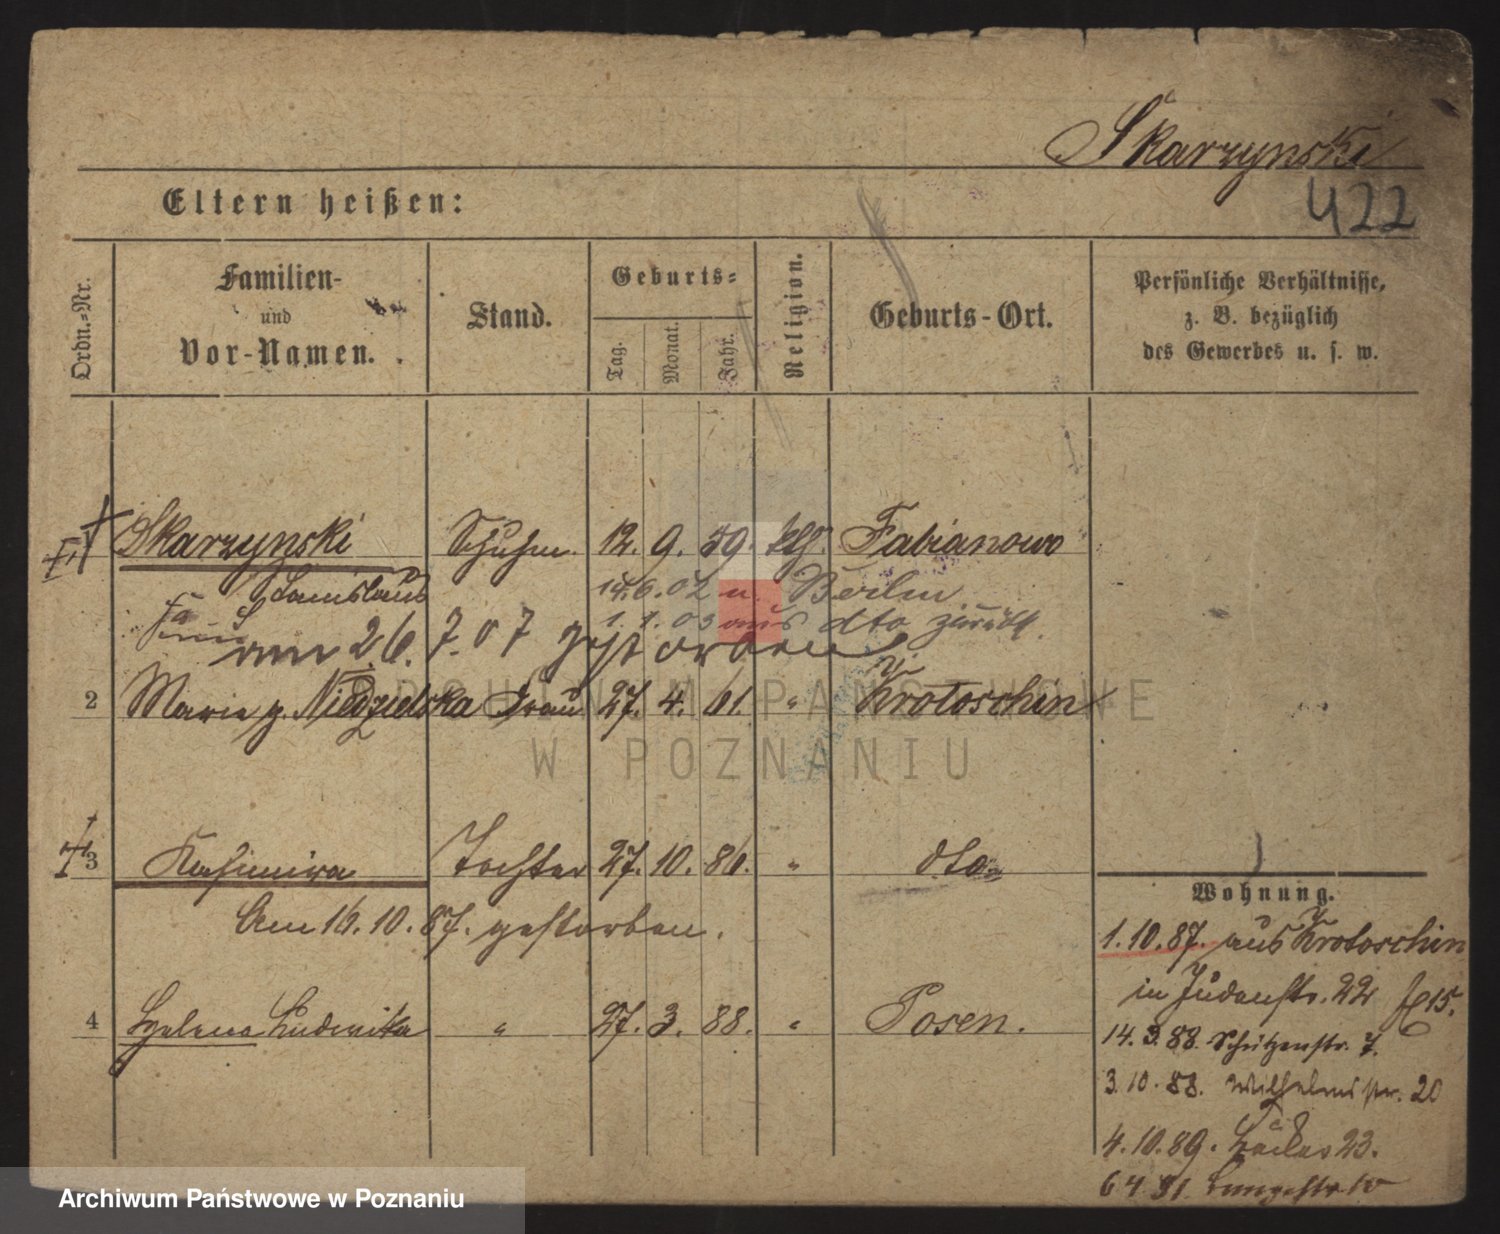 Skarzynski
422
Eltern heißen:
Ordn.-Nr.
Familien-
und
Vor-Namen.
Stand.
Geburts-
Tag.
Monat.
Jahr.
Religion.
Geburts-Ort.
Persönliche Verhältnisse,
z. B. bezüglich
des Gewerbes u. s. w.
Skarzynski Schuhm. 12. 9. 59. kth. Fabianowo
Stanislaus 14.6.02 n. Berlin
1.1.03 aus dto zurück.
am 26.7.07 gestorben
2 Marie g. Niedzielska Frau 27. 4. 61. " Krotoschin
3 Kasimira Tochter 27. 10. 86. " dto.
Am 16.10.87. gestorben.
4 Helena Ludwika " 27. 3. 88. " Posen.
Wohnung.
1.10.87. aus Krotoschin
in Judenstr. 22 15.
14.3.88. Schützenstr. 7.
3.10.88. Wilhelmstr. 20
4.10.89. 23.
6 4 91 Langestr. 10
ARCHIWUM PAŃSTWOWE
W POZNANIU
Archiwum Państwowe w Poznaniu